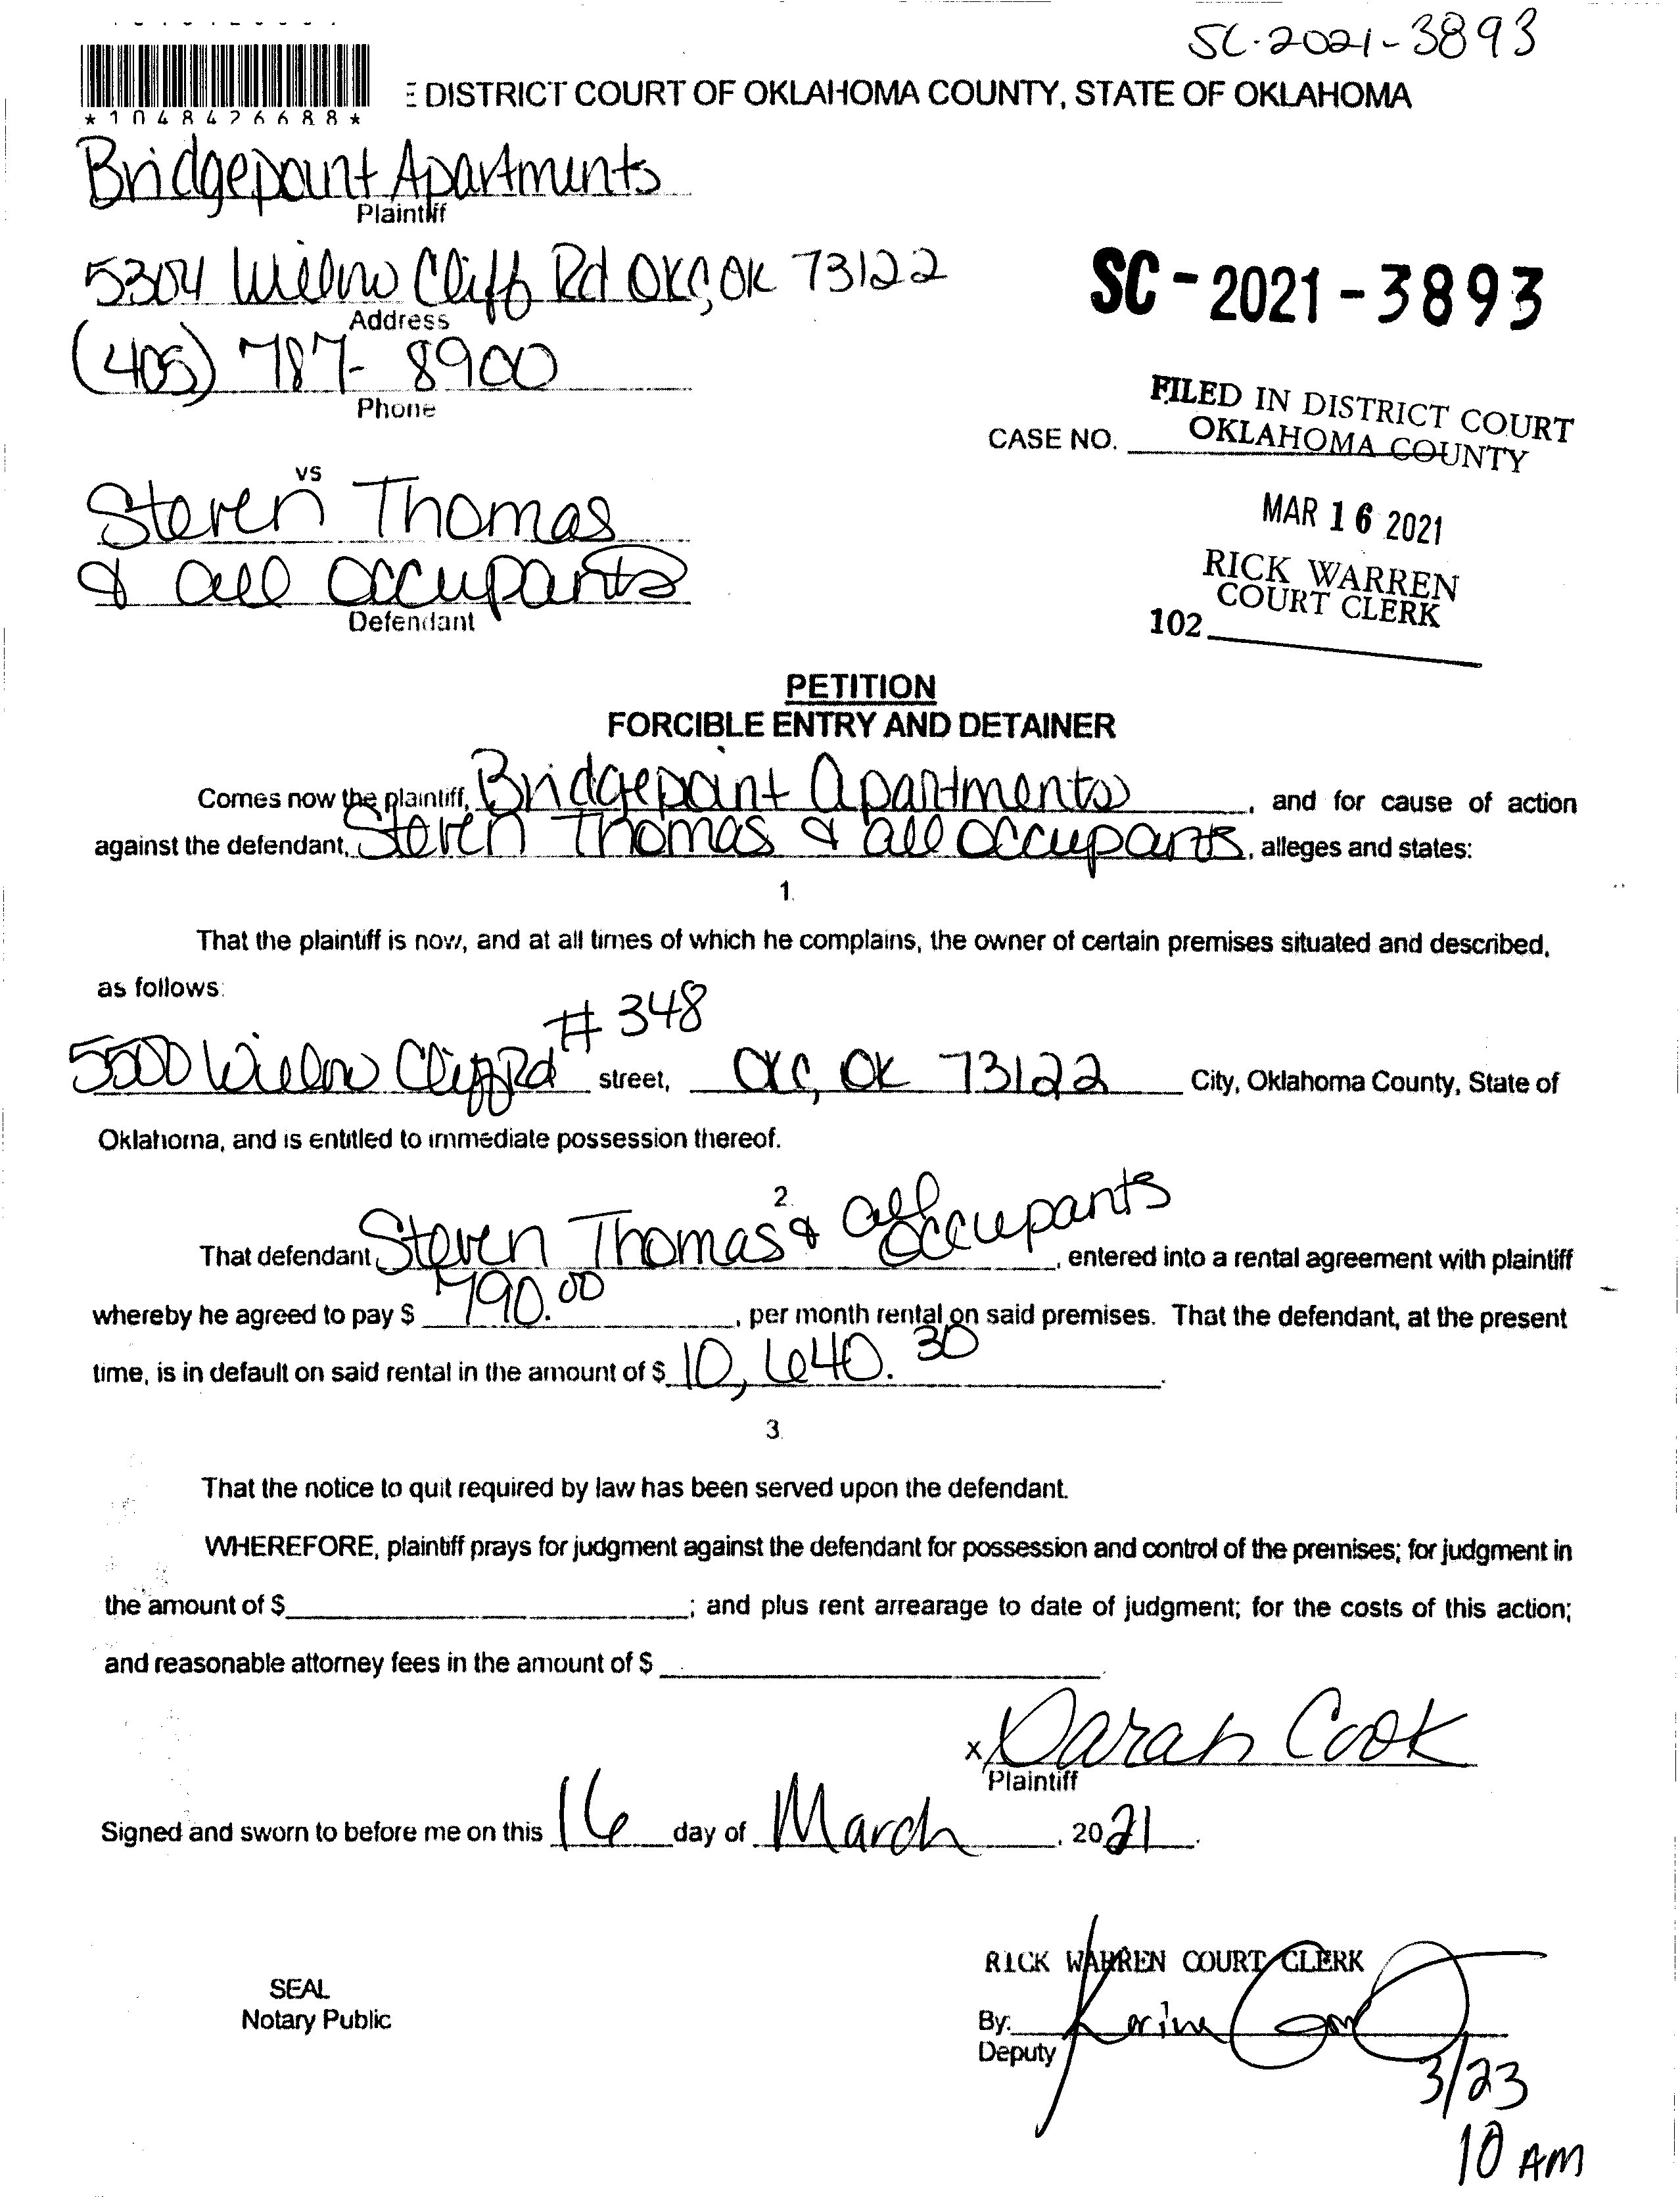 SC-2021-3893
DISTRICT COURT OF OKLAHOMA COUNTY, STATE OF OKLAHOMA
*1048426688*
Bridgepoint Apartments
Plaintiff
5304 Willow Cliff Rd OKC, OK 73122
Address
SC-2021-3893
(405) 787-8900
Phone
FILED IN DISTRICT COURT
OKLAHOMA COUNTY
CASE NO.
vs
Steven Thomas
& all occupants
Defendant
MAR 16 2021
RICK WARREN
COURT CLERK
102
PETITION
FORCIBLE ENTRY AND DETAINER
Comes now the plaintiff, Bridgepoint Apartments, and for cause of action
against the defendant, Steven Thomas & all occupants, alleges and states:
1.
That the plaintiff is now, and at all times of which he complains, the owner of certain premises situated and described,
as follows:
#348
5500 Willow Cliff Rd street, OKC, OK 73122 City, Oklahoma County, State of
Oklahoma, and is entitled to immediate possession thereof.
2.
That defendant, Steven Thomas & all occupants, entered into a rental agreement with plaintiff
whereby he agreed to pay $ 790.00, per month rental on said premises. That the defendant, at the present
time, is in default on said rental in the amount of $ 10,640.30.
3.
That the notice to quit required by law has been served upon the defendant.
WHEREFORE, plaintiff prays for judgment against the defendant for possession and control of the premises; for judgment in
the amount of $ ; and plus rent arrearage to date of judgment; for the costs of this action;
and reasonable attorney fees in the amount of $ .
x Sarah Cook
Plaintiff
Signed and sworn to before me on this 16 day of March, 2021.
RICK WARREN COURT CLERK
SEAL
Notary Public
By:
Deputy
3/23
10 AM